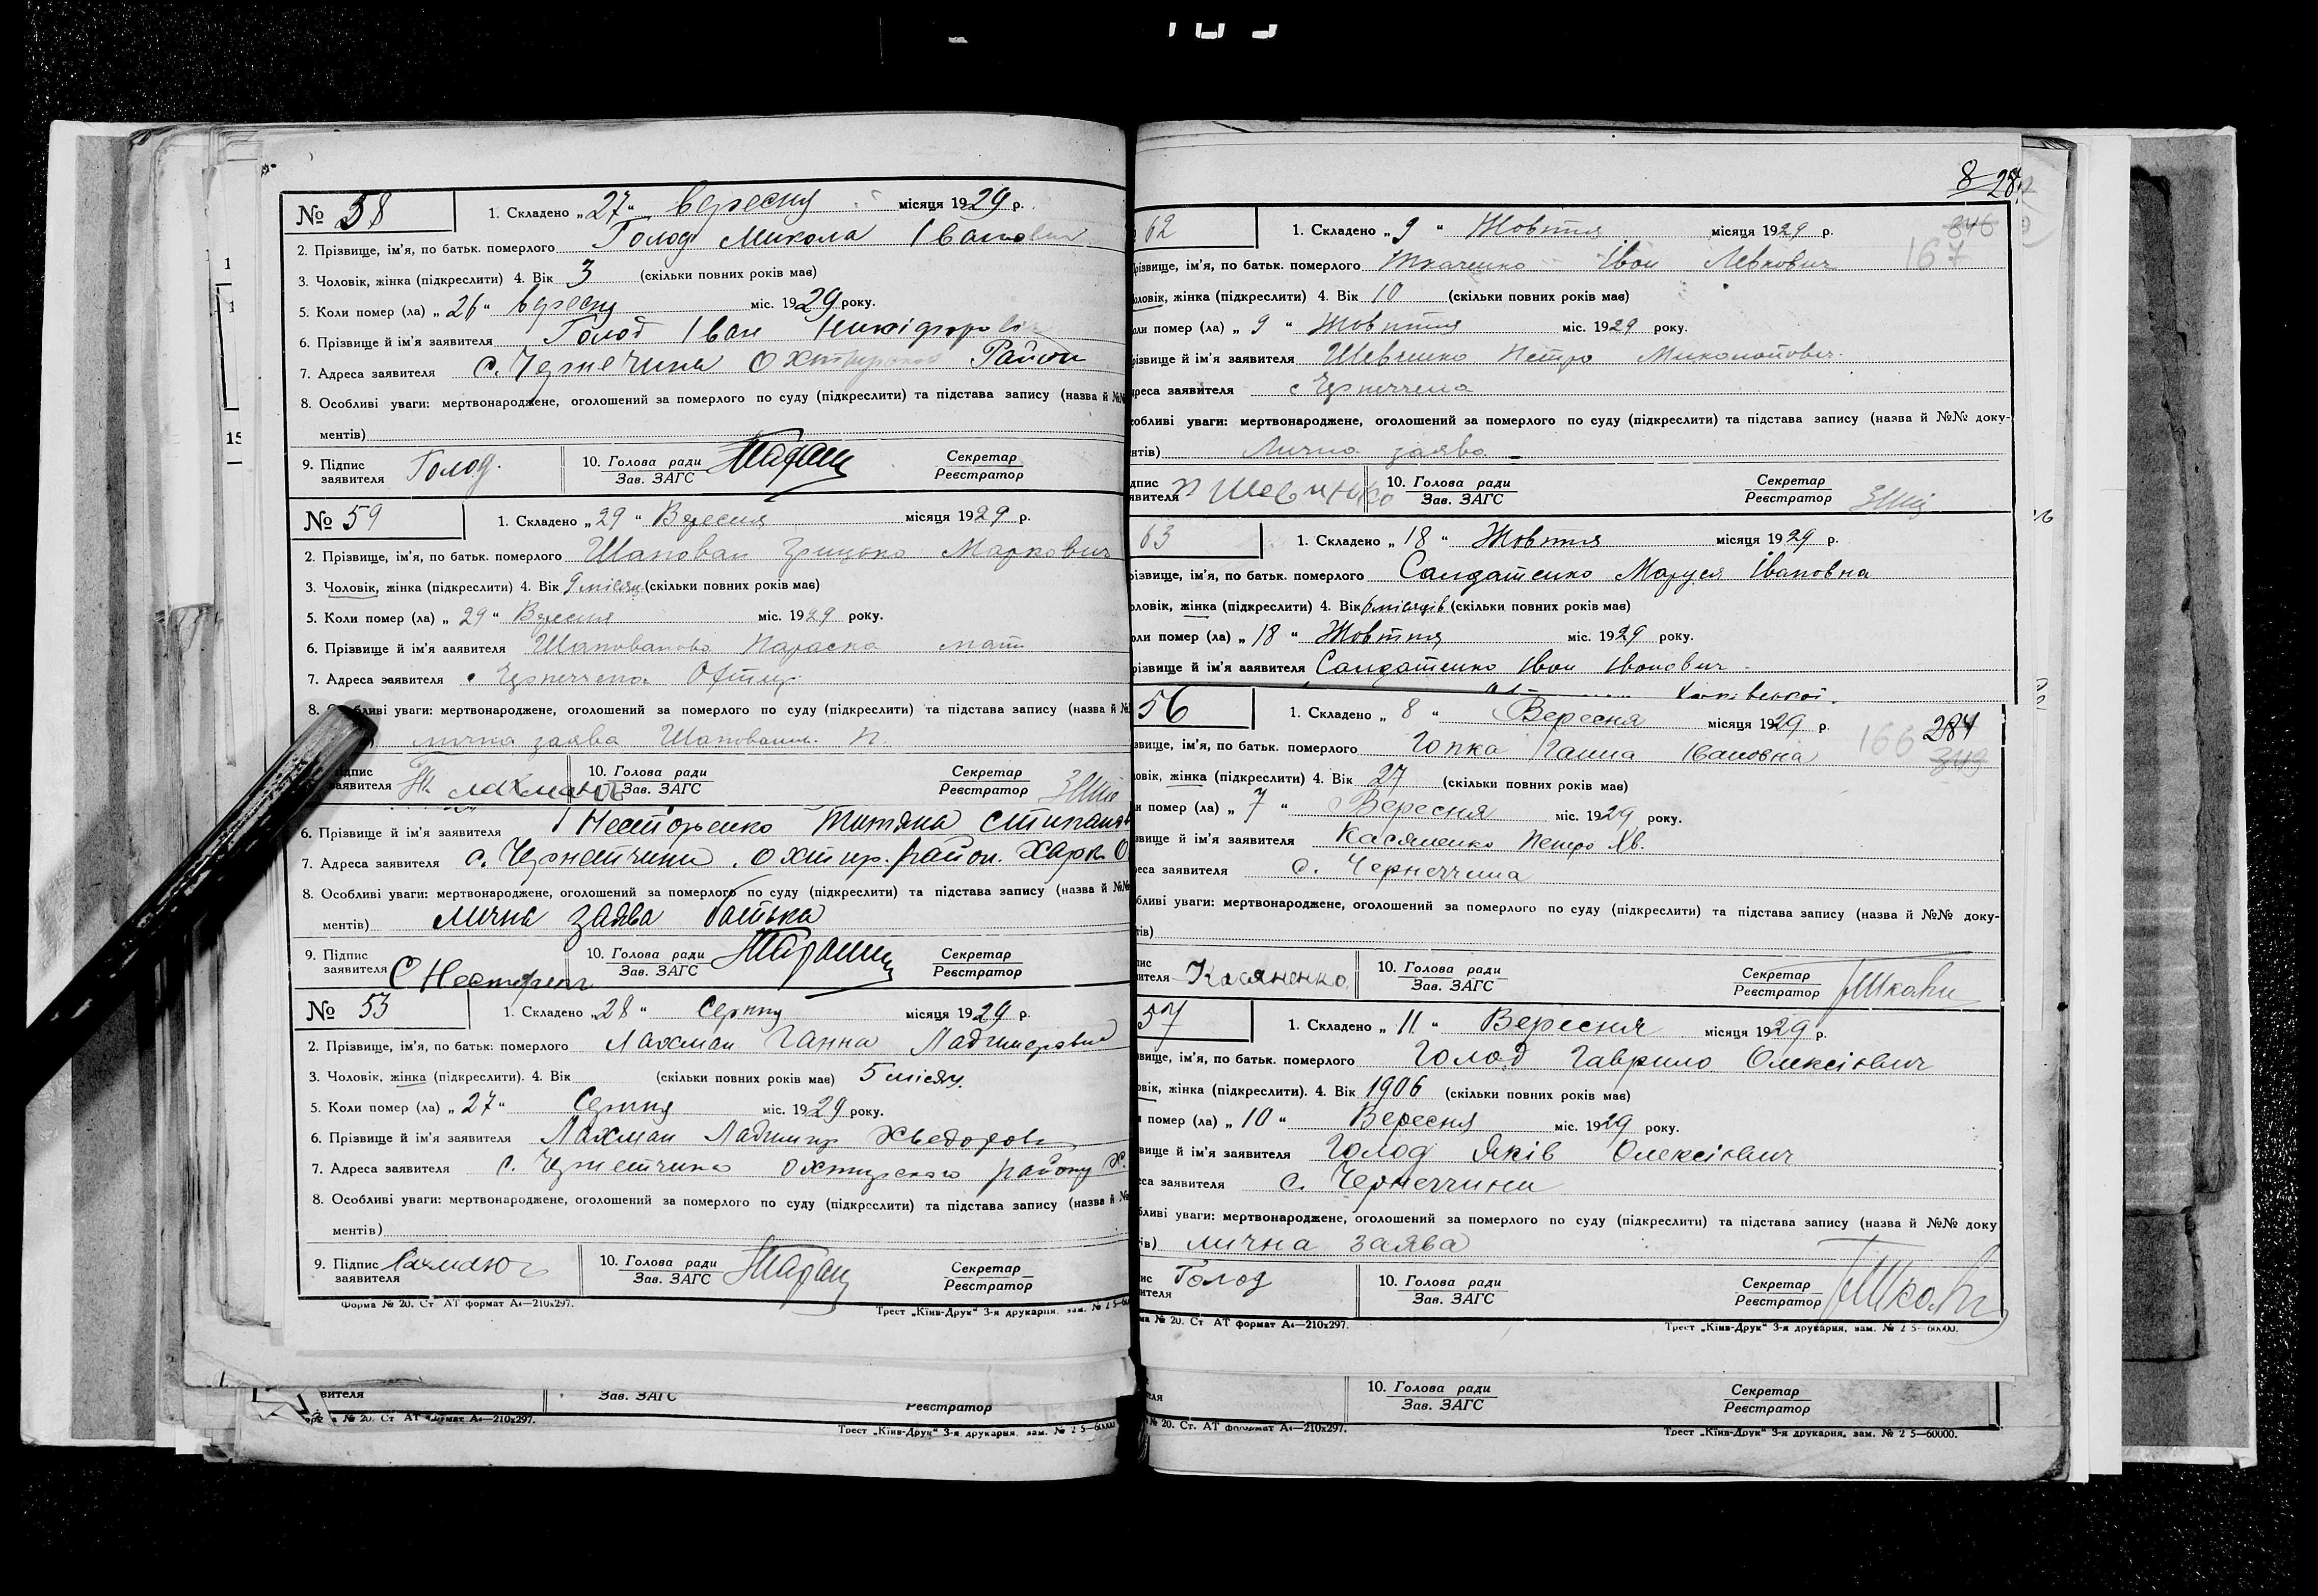 № 58
1. Складено „27“ вересня місяця 1929 р.
2. Прізвище, ім'я, по батьк. померлого Голод Микола Іванович
3. Чоловік, жінка (підкреслити) 4. Вік 3 (скільки повних років має)
5. Коли помер (ла) „26“ вересня міс. 1929 року.
6. Прізвище й ім'я заявителя Голод Іван
7. Адреса заявителя с. Чернетчина Район
8. Особливі уваги: мертвонароджене, оголошений за померлого по суду (підкреслити) та підстава запису (назва й №№
ментів)
9. Підпис заявителя Голод. 10. Голова ради Зав. ЗАГС Секретар Реєстратор
№ 59
1. Складено „29“ Вересня місяця 1929 р.
2. Прізвище, ім'я, по батьк. померлого Шаповал Грицько Маркович
3. Чоловік, жінка (підкреслити) 4. Вік 9 місяц (скільки повних років має)
5. Коли помер (ла) „29“ Вересня міс. 1929 року.
6. Прізвище й ім'я заявителя Шаповалова Параска мати
7. Адреса заявителя Чернеччена
8. Особливі уваги: мертвонароджене, оголошений за померлого по суду (підкреслити) та підстава запису (назва й №
лична заява П.
підпис заявителя 10. Голова ради Зав. ЗАГС Секретар Реєстратор
6. Прізвище й ім'я заявителя Нестеренко Титяна
7. Адреса заявителя с. Чернетчини. Охтир. район. Харк. О
8. Особливі уваги: мертвонароджене, оголошений за померлого по суду (підкреслити) та підстава запису (назва й №№
ментів) лична заява батька
9. Підпис заявителя 10. Голова ради Зав. ЗАГС Секретар Реєстратор
№ 53
1. Складено „28“ Серпня місяця 1929 р.
2. Прізвище, ім'я, по батьк. померлого Лахман Ганна
3. Чоловік, жінка (підкреслити). 4. Вік (скільки повних років має) 5 місяц.
5. Коли помер (ла) „27“ Серпня міс. 1929 року.
6. Прізвище й ім'я заявителя Лахман Ладимир
7. Адреса заявителя с. Чернетчина району Х.
8. Особливі уваги: мертвонароджене, оголошений за померлого по суду (підкреслити) та підстава запису (назва й №
ментів)
9. Підпис заявителя 10. Голова ради Зав. ЗАГС Секретар Реєстратор
Форма № 20. Ст АТ формат А4—210x297. Трест „Київ-Друк“ 3-я друкарня, зам. № 2 5—60
вителя Зав. ЗАГС Реєстратор
№ 20. Ст АТ формат А4—210x297. Трест „Київ-Друк“ 3-я друкарня, зам. № 2 5—60000
8
62
1. Складено „9“ Жовтня місяця 1929 р.
167
різвище, ім'я, по батьк. померлого Ткаченко Іван Левкович
оловік, жінка (підкреслити) 4. Вік 10 (скільки повних років має)
оли помер (ла) „9“ Жовтня міс. 1929 року.
різвище й ім'я заявителя Шевченко Петро Миколайович
дреса заявителя с Чернеччена
собливі уваги: мертвонароджене, оголошений за померлого по суду (підкреслити) та підстава запису (назва й №№ доку-
нтів) Лична заява
дпис явителя П Шевченко 10. Голова ради Зав. ЗАГС Секретар Реєстратор
63
1. Складено „18“ Жовтня місяця 1929 р.
різвище, ім'я, по батьк. померлого Салдатенко Маруся Івановна
оловік, жінка (підкреслити) 4. Вік 6 місяців (скільки повних років має)
оли помер (ла) „18“ Жовтня міс. 1929 року.
різвище й ім'я заявителя Салдатенко Іван Іванович
56
1. Складено „8“ Вересня місяця 1929 р.
166 284
звище, ім'я, по батьк. померлого Гопка Ганна Івановна
овік, жінка (підкреслити) 4. Вік 27 (скільки повних років має)
и помер (ла) „7“ Вересня міс. 1929 року.
звище й ім'я заявителя Касяненко Петро Хв.
еса заявителя с. Чернеччина
бливі уваги: мертвонароджене, оголошений за померлого по суду (підкреслити) та підстава запису (назва й №№ доку-
тів)
пис вителя Касяненко 10. Голова ради Зав. ЗАГС Секретар Реєстратор
57
1. Складено „11“ Вересня місяця 1929 р.
вище, ім'я, по батьк. померлого Голод Гаврило Олексієвич
овік, жінка (підкреслити). 4. Вік 1906 (скільки повних років має)
и помер (ла) „10“ Вересня міс. 1929 року.
вище й ім'я заявителя Голод Яків Олексієвич
еса заявителя с. Чернеччини
бливі уваги: мертвонароджене, оголошений за померлого по суду (підкреслити) та підстава запису (назва й №№ доку
ів) лична заява
ис ителя Голод 10. Голова ради Зав. ЗАГС Секретар Реєстратор
ма № 20. Ст АТ формат А4—210x297. Трест „Київ-Друк“ 3-я друкарня, зам. № 2 5—60000.
10. Голова ради Зав. ЗАГС Секретар Реєстратор
№ 20. Ст. АТ формат А4—210x297. Трест „Київ-Друк“ 3-я друкарня, зам. № 2 5—60000.